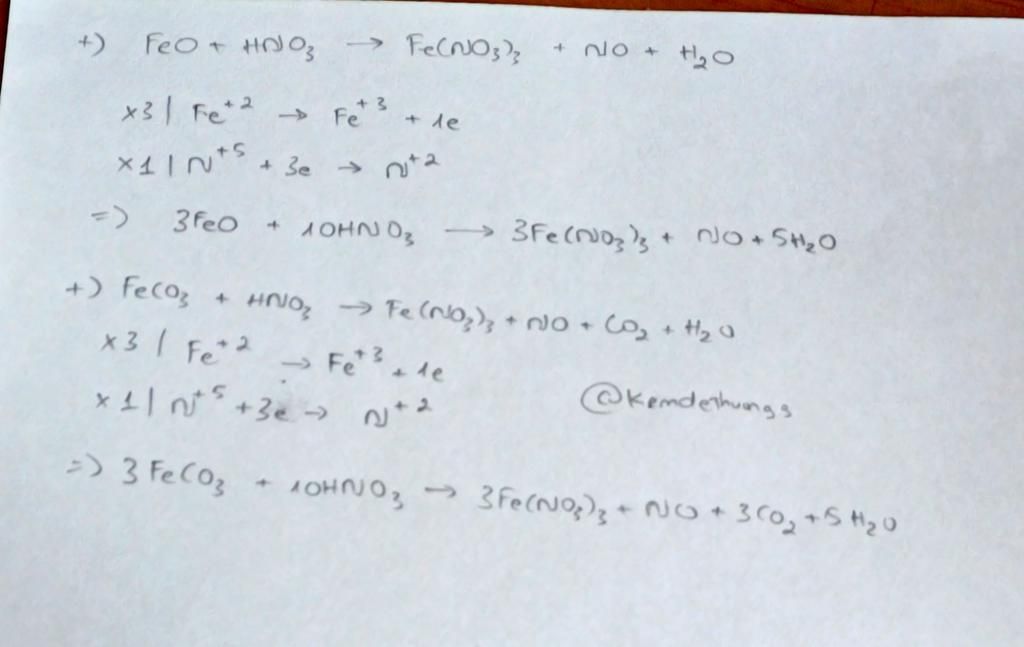 +) FeO + HNO₃ → Fe(NO₃)₃ + NO + H₂O
x3 | Fe⁺² → Fe⁺³ + 1e
x1 | N⁺⁵ + 3e → N⁺²
=) 3FeO + 10HNO₃ → 3Fe(NO₃)₃ + NO + 5H₂O
+) FeCO₃ + HNO₃ → Fe(NO₃)₃ + NO + CO₂ + H₂O
x3 | Fe⁺² → Fe⁺³ + 1e
x1 | N⁺⁵ + 3e → N⁺²
@kemdethungs
=) 3FeCO₃ + 10HNO₃ → 3Fe(NO₃)₃ + NO + 3CO₂ + 5H₂O